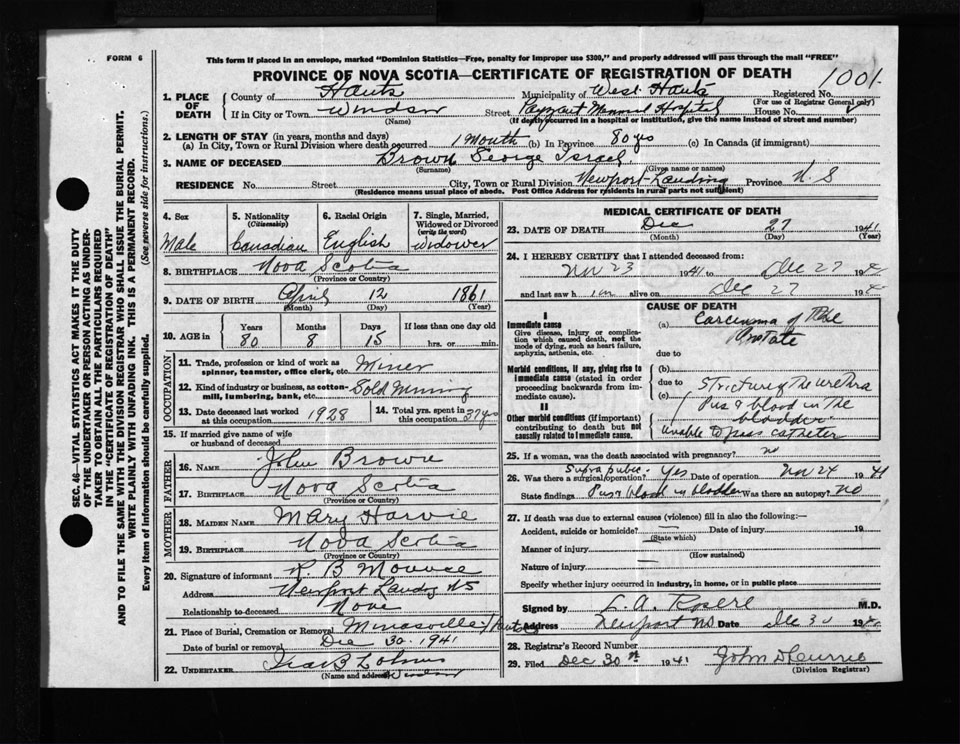 FORM 6
This form if placed in an envelope, marked "Dominion Statistics—Free, penalty for improper use $300," and properly addressed will pass through the mail "FREE"
PROVINCE OF NOVA SCOTIA—CERTIFICATE OF REGISTRATION OF DEATH
1001
1. PLACE OF DEATH County of Hants Municipality of West Hants Registered No.
(For use of Registrar General only)
If in City or Town Windsor Street Payzant Memorial Hospital House No.
(Name) (If death occurred in a hospital or institution, give the name instead of street and number)
2. LENGTH OF STAY (in years, months and days)
(a) In City, Town or Rural Division where death occurred 1 Month (b) In Province 80 yrs (c) In Canada (if immigrant)
3. NAME OF DECEASED Brown George Israel
(Surname) (Given name or names)
RESIDENCE No. Street City, Town or Rural Division Newport Landing Province N. S
(Residence means usual place of abode. Post Office Address for residents in rural parts not sufficient)
4. Sex Male
5. Nationality (Citizenship) Canadian
6. Racial Origin English
7. Single, Married, Widowed or Divorced (write the word) Widower
8. BIRTHPLACE Nova Scotia
(Province or Country)
9. DATE OF BIRTH April 12 1861
(Month) (Day) (Year)
10. AGE in Years Months Days If less than one day old
80 8 15 hrs. or min.
OCCUPATION
11. Trade, profession or kind of work as spinner, teamster, office clerk, etc. Miner
12. Kind of industry or business, as cotton-mill, lumbering, bank, etc. Gold Mining
13. Date deceased last worked at this occupation 1928
14. Total yrs. spent in this occupation 37 yrs
15. If married give name of wife or husband of deceased
FATHER
16. NAME John Brown
17. BIRTHPLACE Nova Scotia
(Province or Country)
MOTHER
18. MAIDEN NAME Mary Harvie
19. BIRTHPLACE Nova Scotia
(Province or Country)
20. Signature of informant
Address Newport Landing NS
Relationship to deceased None
21. Place of Burial, Cremation or Removal Minasville Hants
Date of burial or removal Dec 30. 1941
22. UNDERTAKER
(Name and address) Windsor
MEDICAL CERTIFICATE OF DEATH
23. DATE OF DEATH Dec 27 1941
(Month) (Day) (Year)
24. I HEREBY CERTIFY that I attended deceased from:
Nov 23 1941 to Dec 27 194
and last saw him alive on Dec 27 194
CAUSE OF DEATH
I
Immediate cause
Give disease, injury or complication which caused death, not the mode of dying, such as heart failure, asphyxia, asthenia, etc.
(a) Carcinoma of the Prostate
due to
Morbid conditions, if any, giving rise to immediate cause (stated in order proceeding backwards from immediate cause).
(b)
due to Stricture of the urethra
(c) Pus & blood in the bladder
II
Other morbid conditions (if important) contributing to death but not causally related to immediate cause.
Unable to pass catheter
25. If a woman, was the death associated with pregnancy? no
26. Was there a surgical operation? Supra pubic. Yes Date of operation Nov 24 1941
State findings Pus & blood in bladder Was there an autopsy? NO
27. If death was due to external causes (violence) fill in also the following:—
Accident, suicide or homicide? Date of injury 19
(State which)
Manner of injury
(How sustained)
Nature of injury
Specify whether injury occurred in industry, in home, or in public place
Signed by M.D.
Newport NS Date Dec 30 194
28. Registrar's Record Number
29. Filed Dec 30th 1941 John D Currie
(Division Registrar)
SEC. 46—VITAL STATISTICS ACT MAKES IT THE DUTY
OF THE UNDERTAKER OR PERSON ACTING AS UNDER-
TAKER TO OBTAIN ALL THE PARTICULARS REQUIRED
IN THE "CERTIFICATE OF REGISTRATION OF DEATH"
AND TO FILE THE SAME WITH THE DIVISION REGISTRAR WHO SHALL ISSUE THE BURIAL PERMIT.
WRITE PLAINLY WITH UNFADING INK. THIS IS A PERMANENT RECORD.
Every item of information should be carefully supplied. (See reverse side for instructions.)